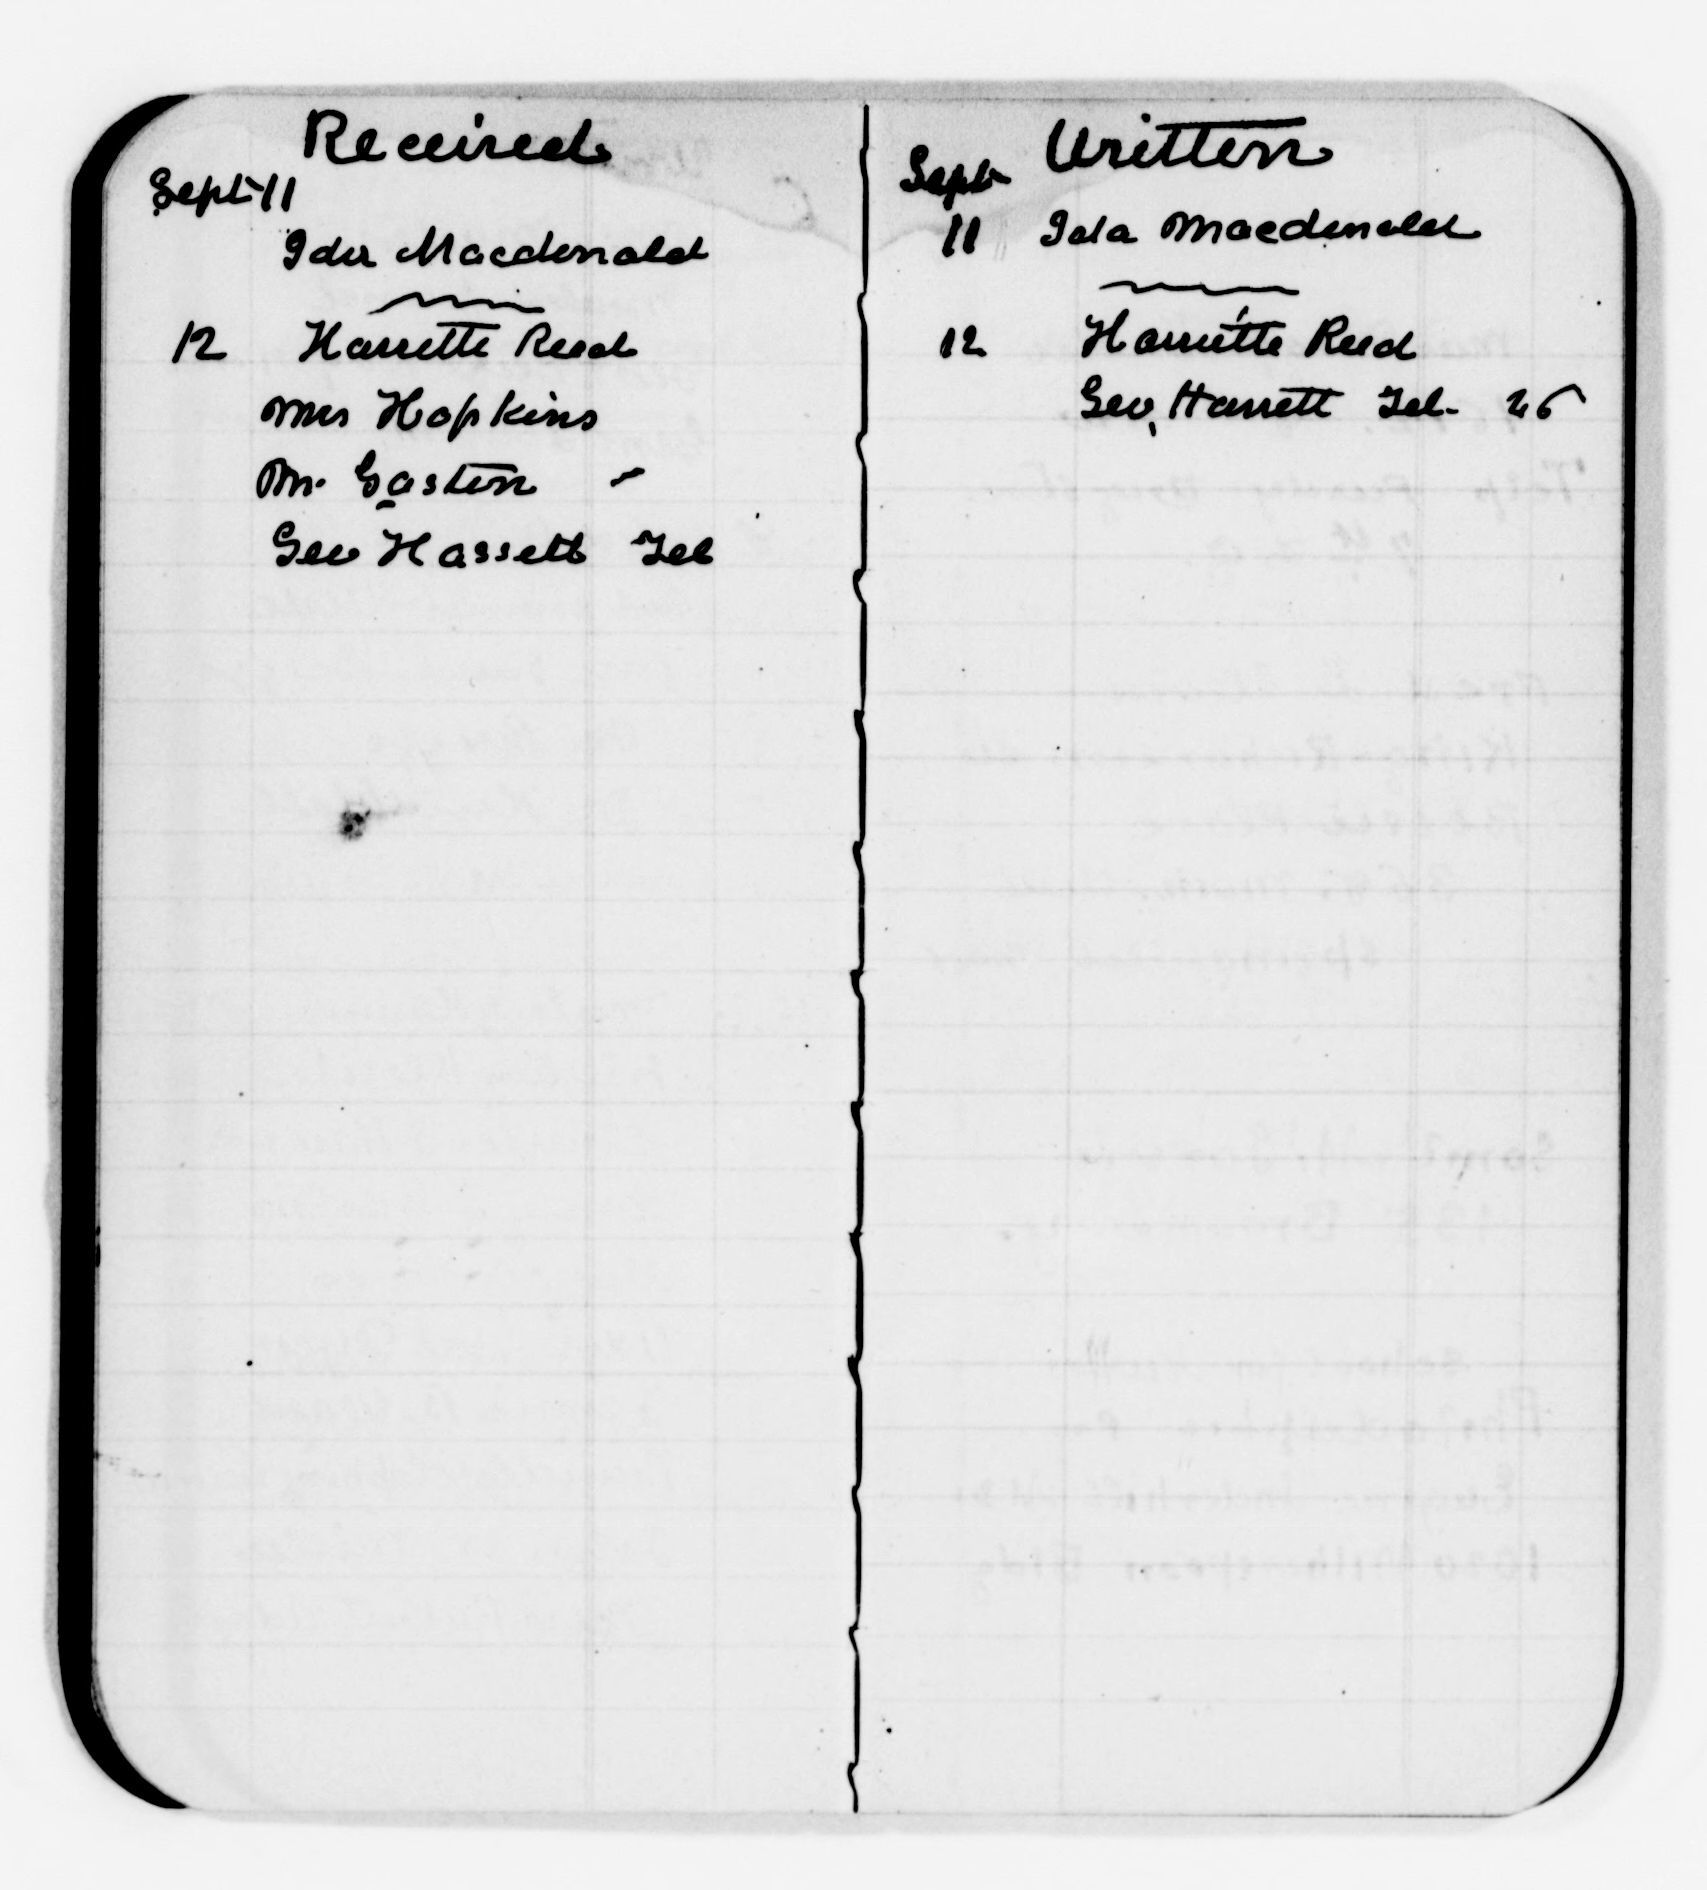 Received
Sept 11
Ida Macdonald
12 Harrette Reed
Mrs Hopkins
Mr. Gaston -
Geo Hassett Tel
Written
Sept
11 Ida Macdonald
12 Harriette Reed
Geo, Harrett Tel. 26